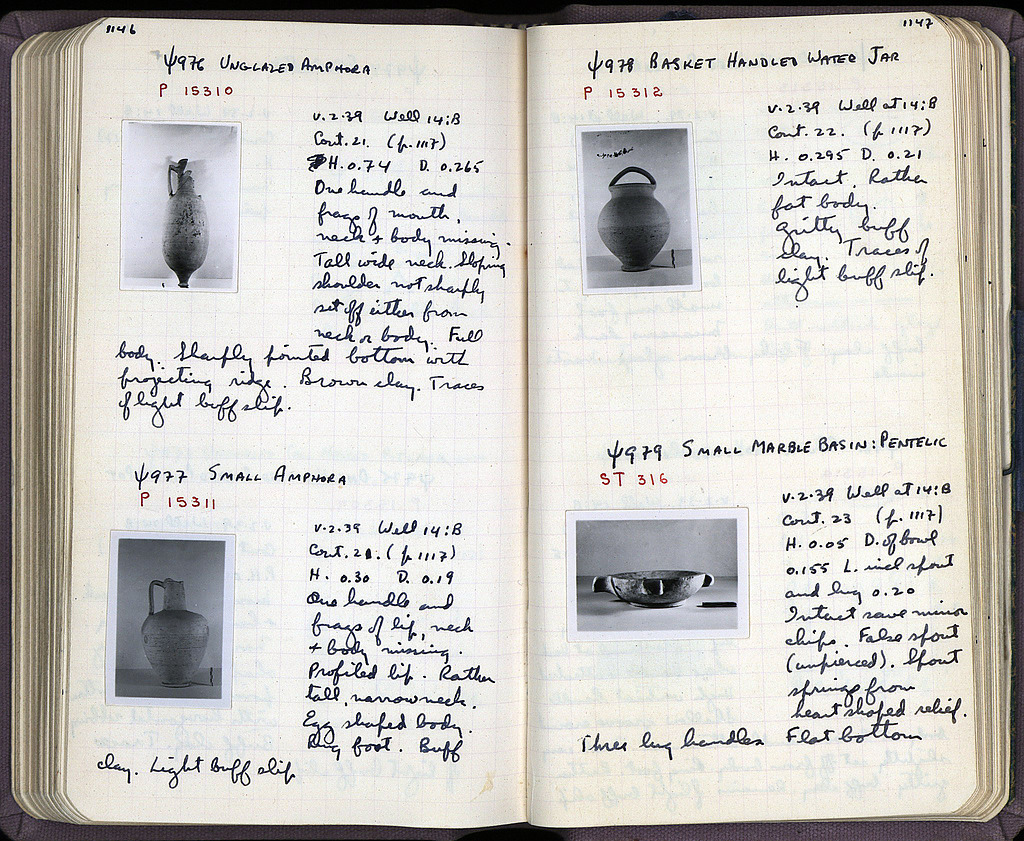 1146
Ψ976 UNGLAZED AMPHORA
P 15310
V.2.39 Well 14:B
Cont. 21. (p. 1117)
H. 0.74 D. 0.265
One handle and
frags of mouth,
neck + body missing.
Tall wide neck. Sloping
shoulder not sharply
set off either from
neck or body. Full
body. Sharply pointed bottom with
projecting ridge. Brown clay. Traces
of light buff slip.
Ψ977 SMALL AMPHORA
P 15311
V.2.39 Well 14:B
Cont. 21. (p. 1117)
H. 0.30 D. 0.19
One handle and
frags of lip, neck
+ body missing.
Profiled lip. Rather
tall, narrow neck.
Egg shaped body.
Ring foot. Buff
clay. Light buff slip
1147
Ψ978 BASKET HANDLED WATER JAR
P 15312
V.2.39 Well at 14:B
Cont. 22. (p. 1117)
H. 0.295 D. 0.21
Intact. Rather
fat body.
Gritty buff
clay. Traces of
light buff slip.
Ψ979 SMALL MARBLE BASIN: PENTELIC
ST 316
V.2.39 Well at 14:B
Cont. 23 (p. 1117)
H. 0.05 D. of bowl
0.155 L. incl spout
and lug 0.20
Intact save minor
chips. False spout
(unpierced). Spout
springs from
heart shaped relief.
Three lug handles Flat bottom